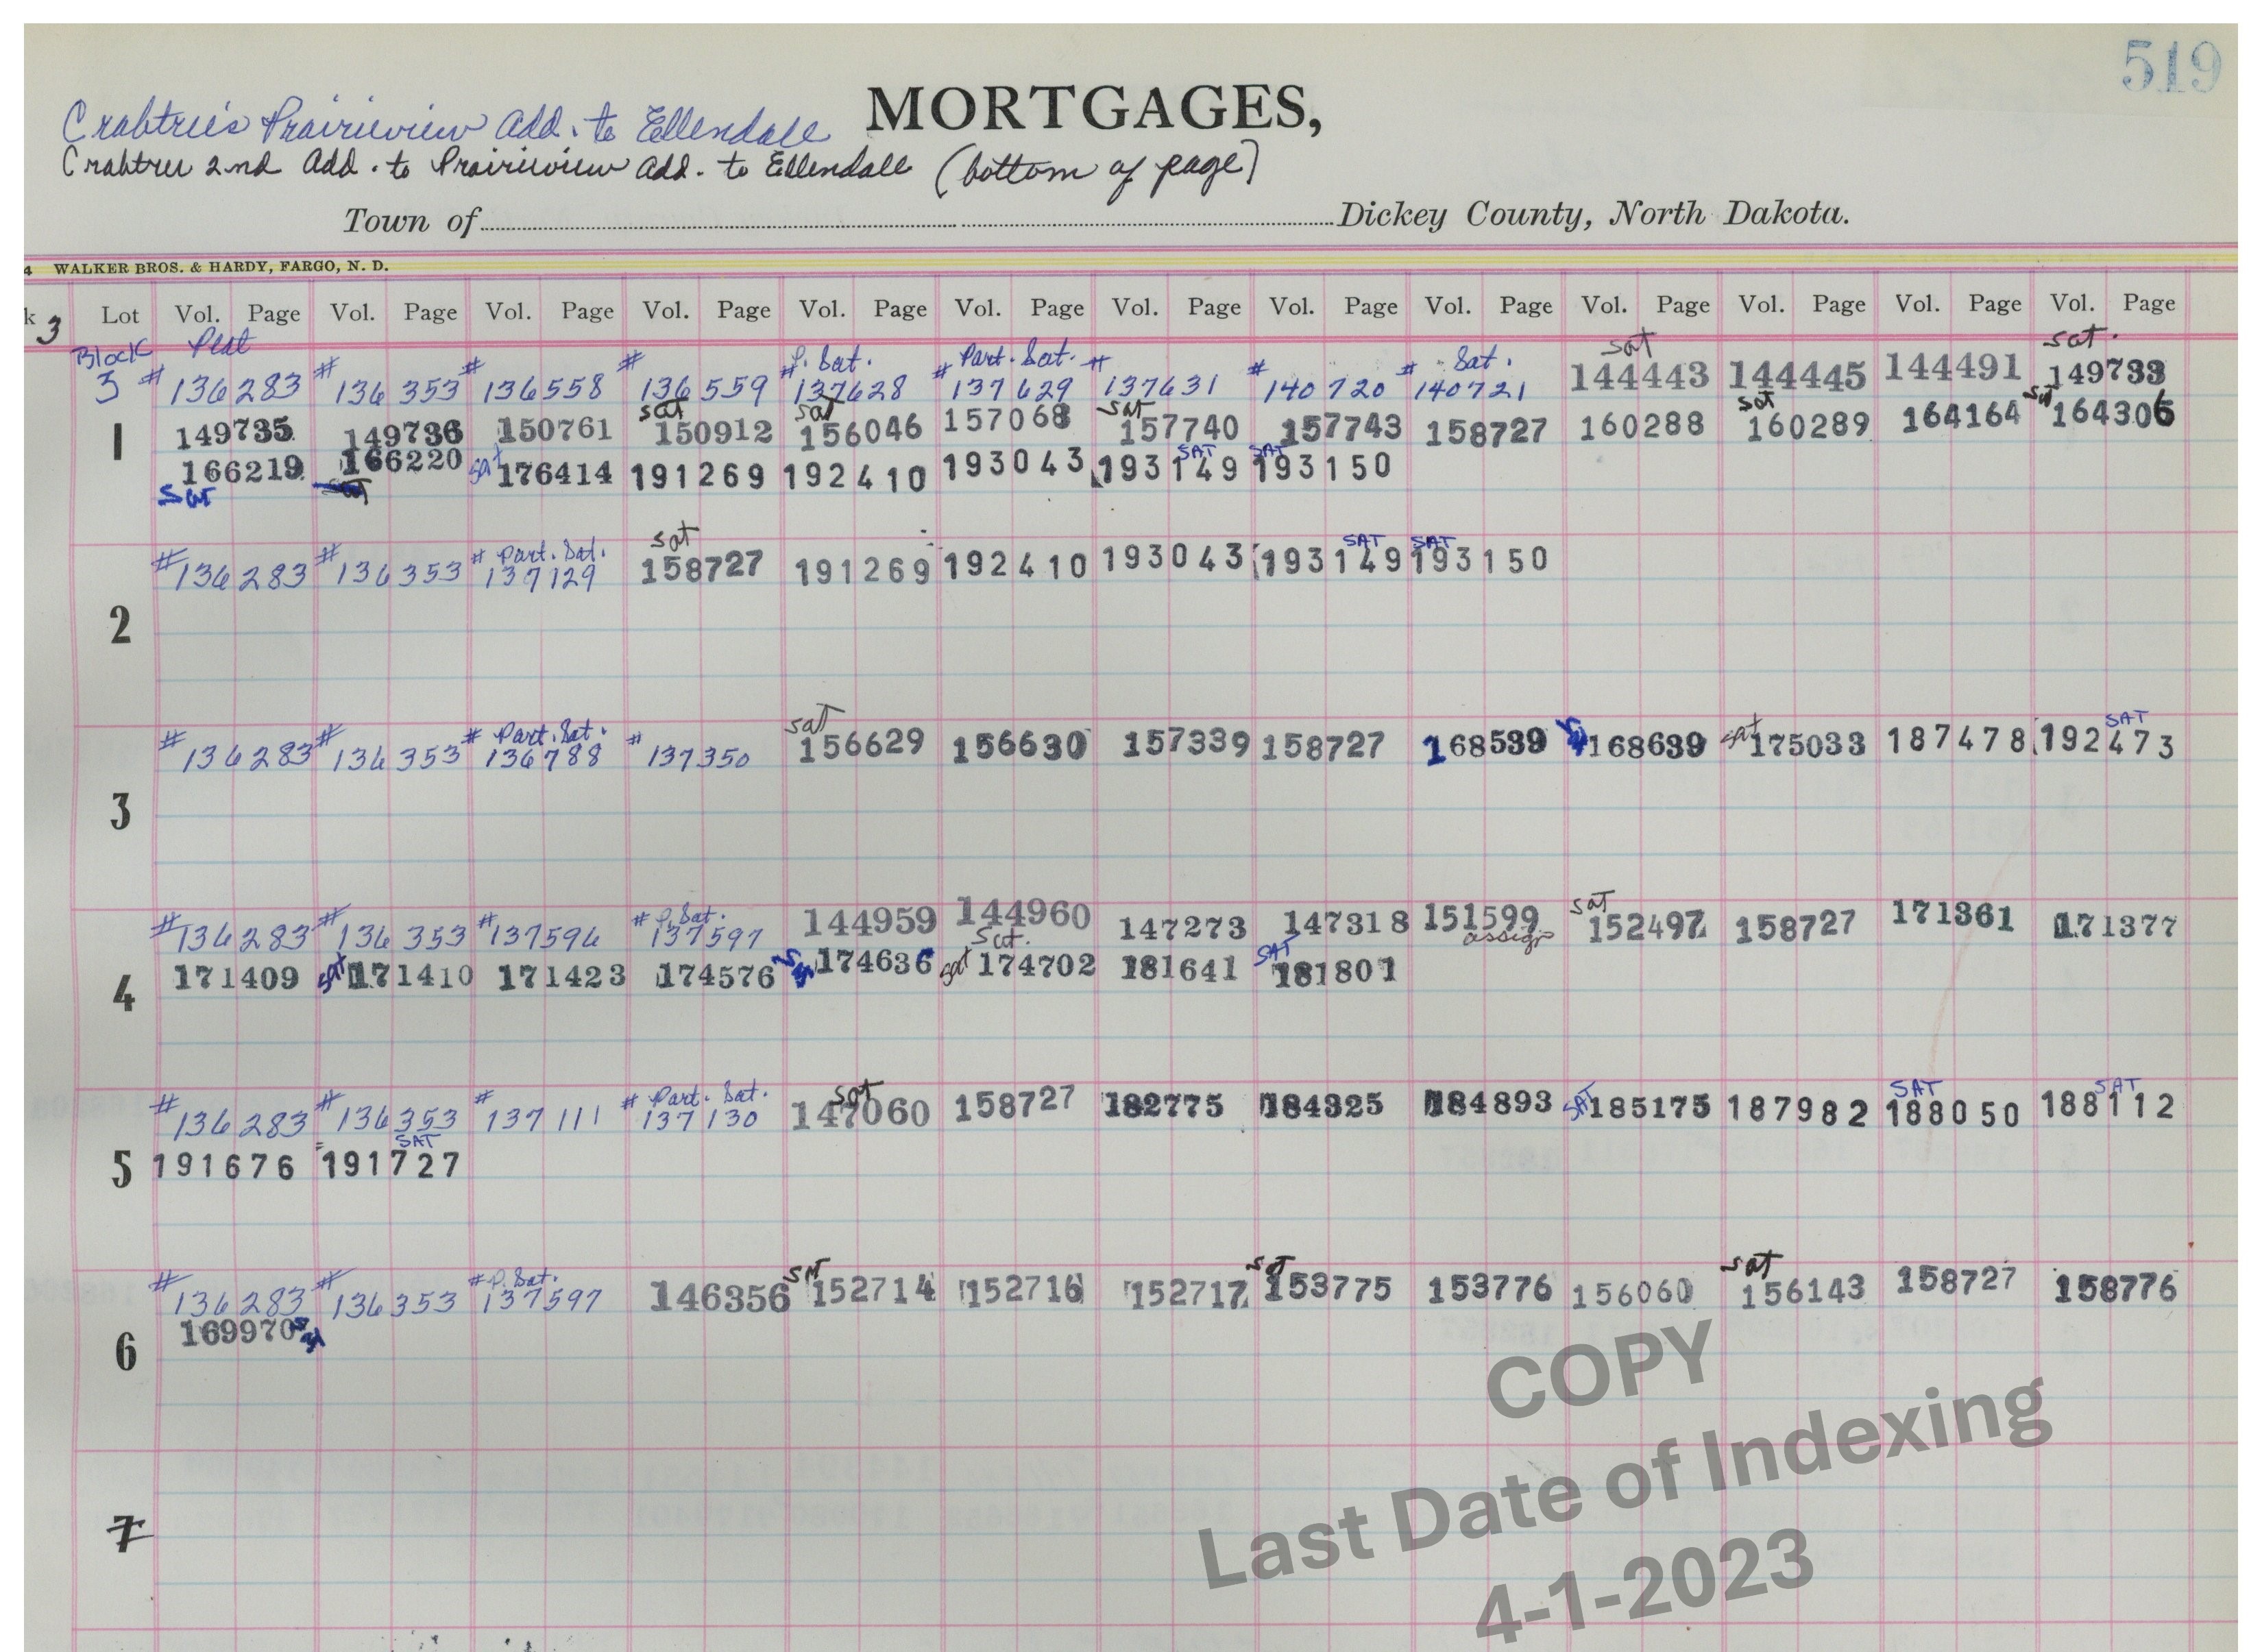 519
MORTGAGES,
Crabtree's Prairieview Add. to Ellendale
Crabtree 2nd Add. to Prairieview Add. to Ellendale (bottom of page)
Town of Dickey County, North Dakota.
4 WALKER BROS. & HARDY, FARGO, N. D.
k Lot Vol. Page Vol. Page Vol. Page Vol. Page Vol. Page Vol. Page Vol. Page Vol. Page Vol. Page Vol. Page Vol. Page Vol. Page Vol. Page
3
Block Plat P. Sat. Part. Sat. Sat. sat sat.
3 #136283 #136353 #136558 #136559 #137628 #137629 #137631 #140720 #140721 144443 144445 144491 149733
sat sat sat sat sat
1 149735 149736 150761 150912 156046 157068 157740 157743 158727 160288 160289 164164 164306
sat SAT SAT
166219 166220 176414 191269 192410 193043 193149 193150
Sat Sat
Part. Sat. sat SAT SAT
#136283 #136353 #137129 158727 191269 192410 193043 193149 193150
2
Part. Sat. sat sat SAT
#136283 #136353 #136788 #137350 156629 156630 157339 158727 168539 168639 175033 187478 192473
3
P. Sat. sat
#136283 #136353 #137596 #137597 144959 144960 147273 147318 151599 152497 158727 171361 171377
assign
sat Sat. sat SAT
4 171409 171410 171423 174576 174636 174702 181641 181801
Part. Sat. sat SAT SAT SAT
#136283 #136353 #137111 #137130 147060 158727 182775 184325 184893 185175 187982 188050 188112
SAT
5 191676 191727
P. Sat. sat sat sat
#136283 #136353 #137597 146356 152714 152716 152717 153775 153776 156060 156143 158727 158776
169970
6
7
COPY
Last Date of Indexing
4-1-2023